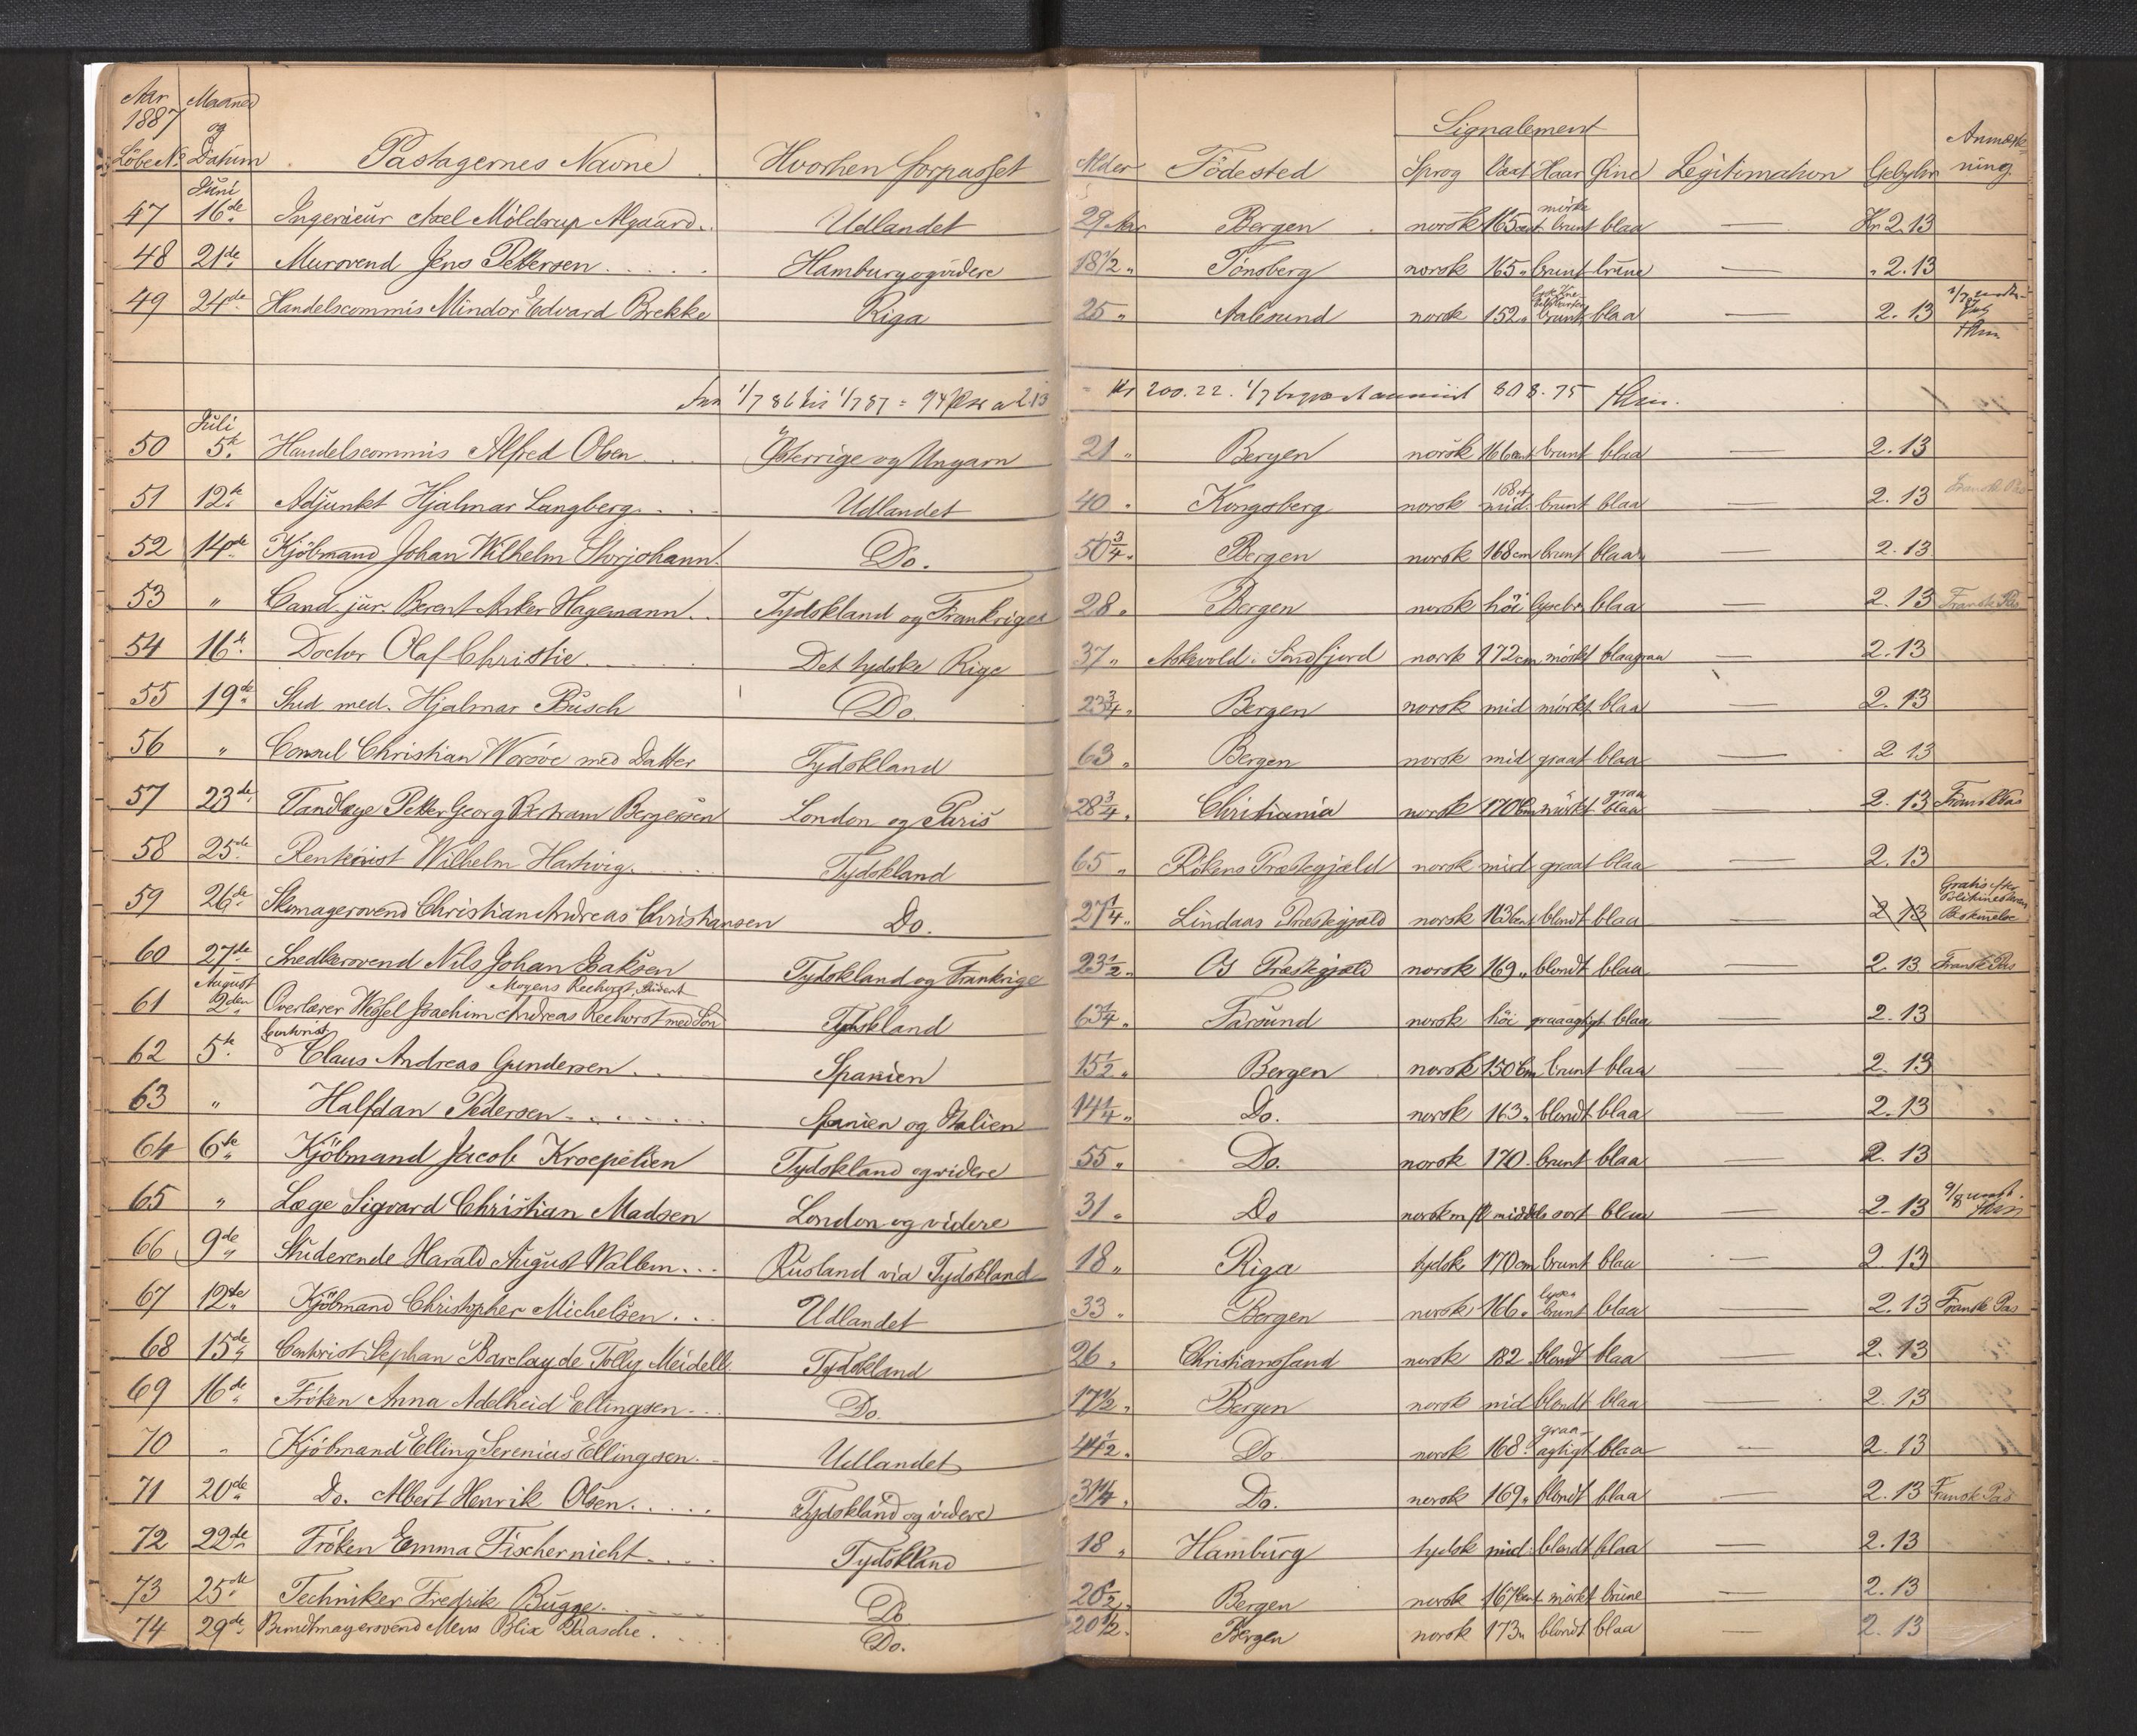 Aar 1887 Maaned og
Löbe No Datum Passagernes Navne Hvorhen forpasset Alder Födested Signalement Sprog Vext Haar Øine Legitimation Gebyhr Anmærkning
Juni
47 16de Ingenieur Axel Möldrup Algaard Udlandet 29 Aar Bergen norsk 165 cmt mörke brunt blaa — Kr 2.13
48 21de Mursvend Jens Pettersen Hamburg og videre 18 1/2 " Tönsberg norsk 165 " brunt brune — " 2.13
49 24de Handelscommis Mindor Edvard Brekke Riga 25 " Aalesund norsk 152 " brunt blaa — 2.13
Fra 1/7 86 til 1/7 87 = 94 a 2.13 = Kr 200.22. 808.75
Juli
50 5te Handelscommis Alfred Olsen Österrige og Ungarn 21 " Bergen norsk 166 cmt brunt blaa — 2.13
51 12te Adjunkt Hjalmar Langberg Udlandet 40 " Kongsberg norsk 168 ct mid. brunt blaa — 2.13 Fransk Pas
52 14de Kjöbmand Johan Wilhelm Storjohann Do. 50 3/4 " Bergen norsk 168 cm brunt blaa — 2.13
53 " Cand. jur. Berent Anker Hagemann Tydskland og Frankriget 28 " Bergen norsk höi lysebr. blaa — 2.13 Fransk Pas
54 16de Doctor Olaf Christie Det tydske Rige 37 " Askevold i Söndfjord norsk 172 cm mörkt blaagraa — 2.13
55 19de Stud. med. Hjalmar Busch Do. 23 3/4 " Bergen norsk mid mörkt blaa — 2.13
56 " Consul Christian Worsöe med Datter Tydskland 63 " Bergen norsk mid graat blaa — 2.13
57 23de Tandlæge Petter Georg Bertram Bergersen London og Paris 28 3/4 " Christiania norsk 170 cm mörkt graa blaa — 2.13 Fransk Pas
58 25de Rentenist Wilhelm Hadwig Tydskland 65 " Rökens Præstegjæld norsk mid graat blaa — 2.13
59 26de Skomagersvend Christian Andreas Christiansen Do. 27 1/4 " Lindaas Præstegjæld norsk 163 cmt blondt blaa — 2.13 Gratis efter Politimesterens Beskrivelse
60 27de Snedkersvend Nils Johan Isaksen Tydskland og Frankrige 23 1/2 " Os Præstegjæld norsk 169 " blondt blaa — 2.13 Fransk Pas
August Mogens Reehorst, Student
61 2den Overlærer Wessel Joachim Andreas Reehorst med Sön Tydskland 63 1/4 " Farsund norsk höi graaagtigt blaa — 2.13
62 5te Contorist Claus Andreas Gundersen Spanien 15 1/2 " Bergen norsk 150 cm brunt blaa — 2.13
63 " Halfdan Pedersen Spanien og Italien 14 1/4 " Do. norsk 163 " blondt blaa — 2.13
64 6te Kjöbmand Jacob Kroepelien Tydskland og videre 55 " Do. norsk 170 brunt blaa — 2.13
65 " Læge Sigvard Christian Madsen London og videre 31 " Do norsk m fl middels sort blaa — 2.13
66 9de " Studerende Harald August Wallem Rusland via Tydskland 18 " Riga tydsk 170 cm brunt blaa — 2.13
67 12te Kjöbmand Christopher Michelsen Udlandet 33 " Bergen norsk 166 " lyse brunt blaa — 2.13 Fransk Pas
68 15de Contorist Stephan Barclay de Tolly Meidell Tydskland 26 " Christianssand norsk 182 blondt blaa — 2.13
69 16de Fröken Anna Adelheid Ellingsen Do. 17 1/2 " Bergen norsk mid blondt blaa — 2.13
70 " Kjöbmand Elling Serenius Ellingsen Udlandet 44 1/2 " Do norsk 168 " graaagtigt blaa — 2.13
71 20de Do. Albert Henrik Olsen Tydskland og videre 31 1/4 " Do. norsk 169 " blondt blaa — 2.13 Fransk Pas
72 22de Fröken Emma Fischernicht Tydskland 18 " Hamburg tydsk mid. blondt blaa — 2.13
73 25de Techniker Fredrik Bugge Do 20 1/2 " Bergen norsk 167 cmt mörkt brune — 2.13
74 29de Bundtmagersvend Mens Blix Paasche Do. 20 1/2 " Bergen norsk 173 " blondt blaa — 2.13